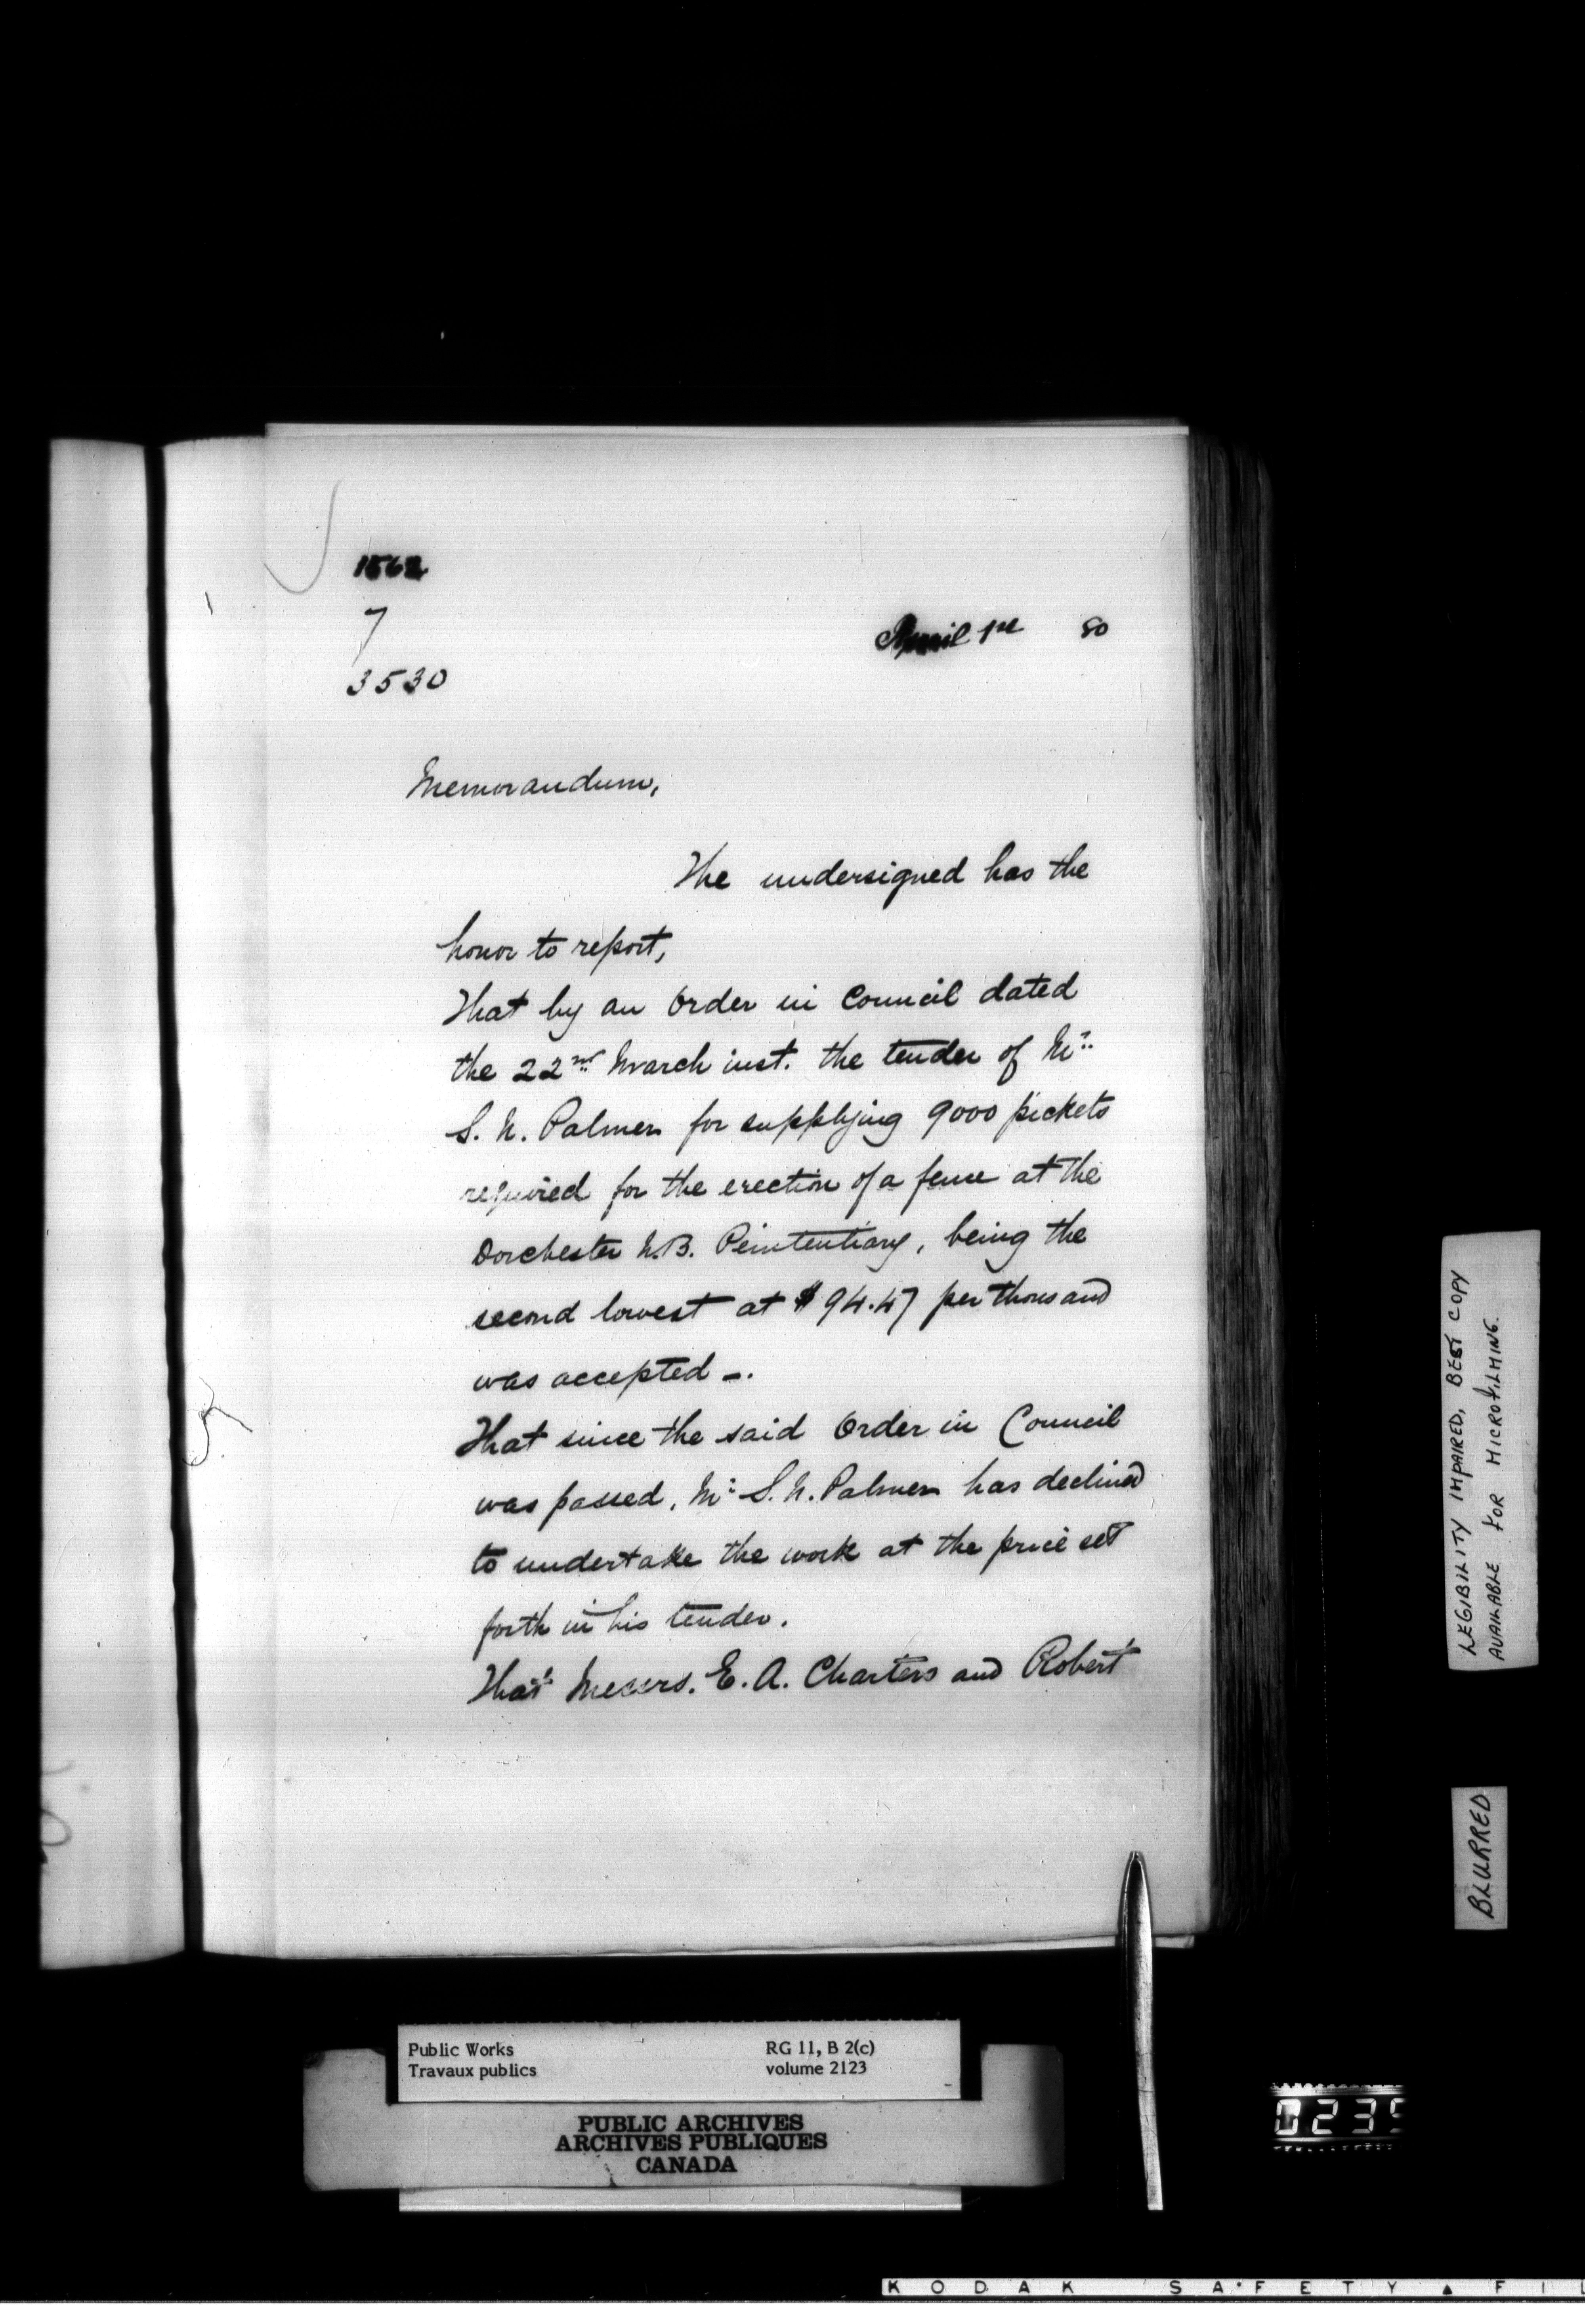 1562
7
3530
April 1st 80
Memorandum,
The undersigned has the
honor to report,
That by an Order in Council dated
the 22nd March inst. the tender of Mr.
S. N. Palmer for supplying 9000 pickets
required for the erection of a fence at the
Dorchester N.B. Penitentiary, being the
second lowest at $94.47 per thousand
was accepted -.
That since the said Order in Council
was passed, Mr. S. N. Palmer has declined
to undertake the work at the price set
forth in his tender.
That Messrs. E. A. Charters and Robert
LEGIBILITY IMPAIRED, BEST COPY
AVAILABLE FOR MICROFILMING.
BLURRED
Public Works RG 11, B 2(c)
Travaux publics volume 2123
PUBLIC ARCHIVES
ARCHIVES PUBLIQUES
CANADA
0235
KODAK SAFETY ▲ FIL